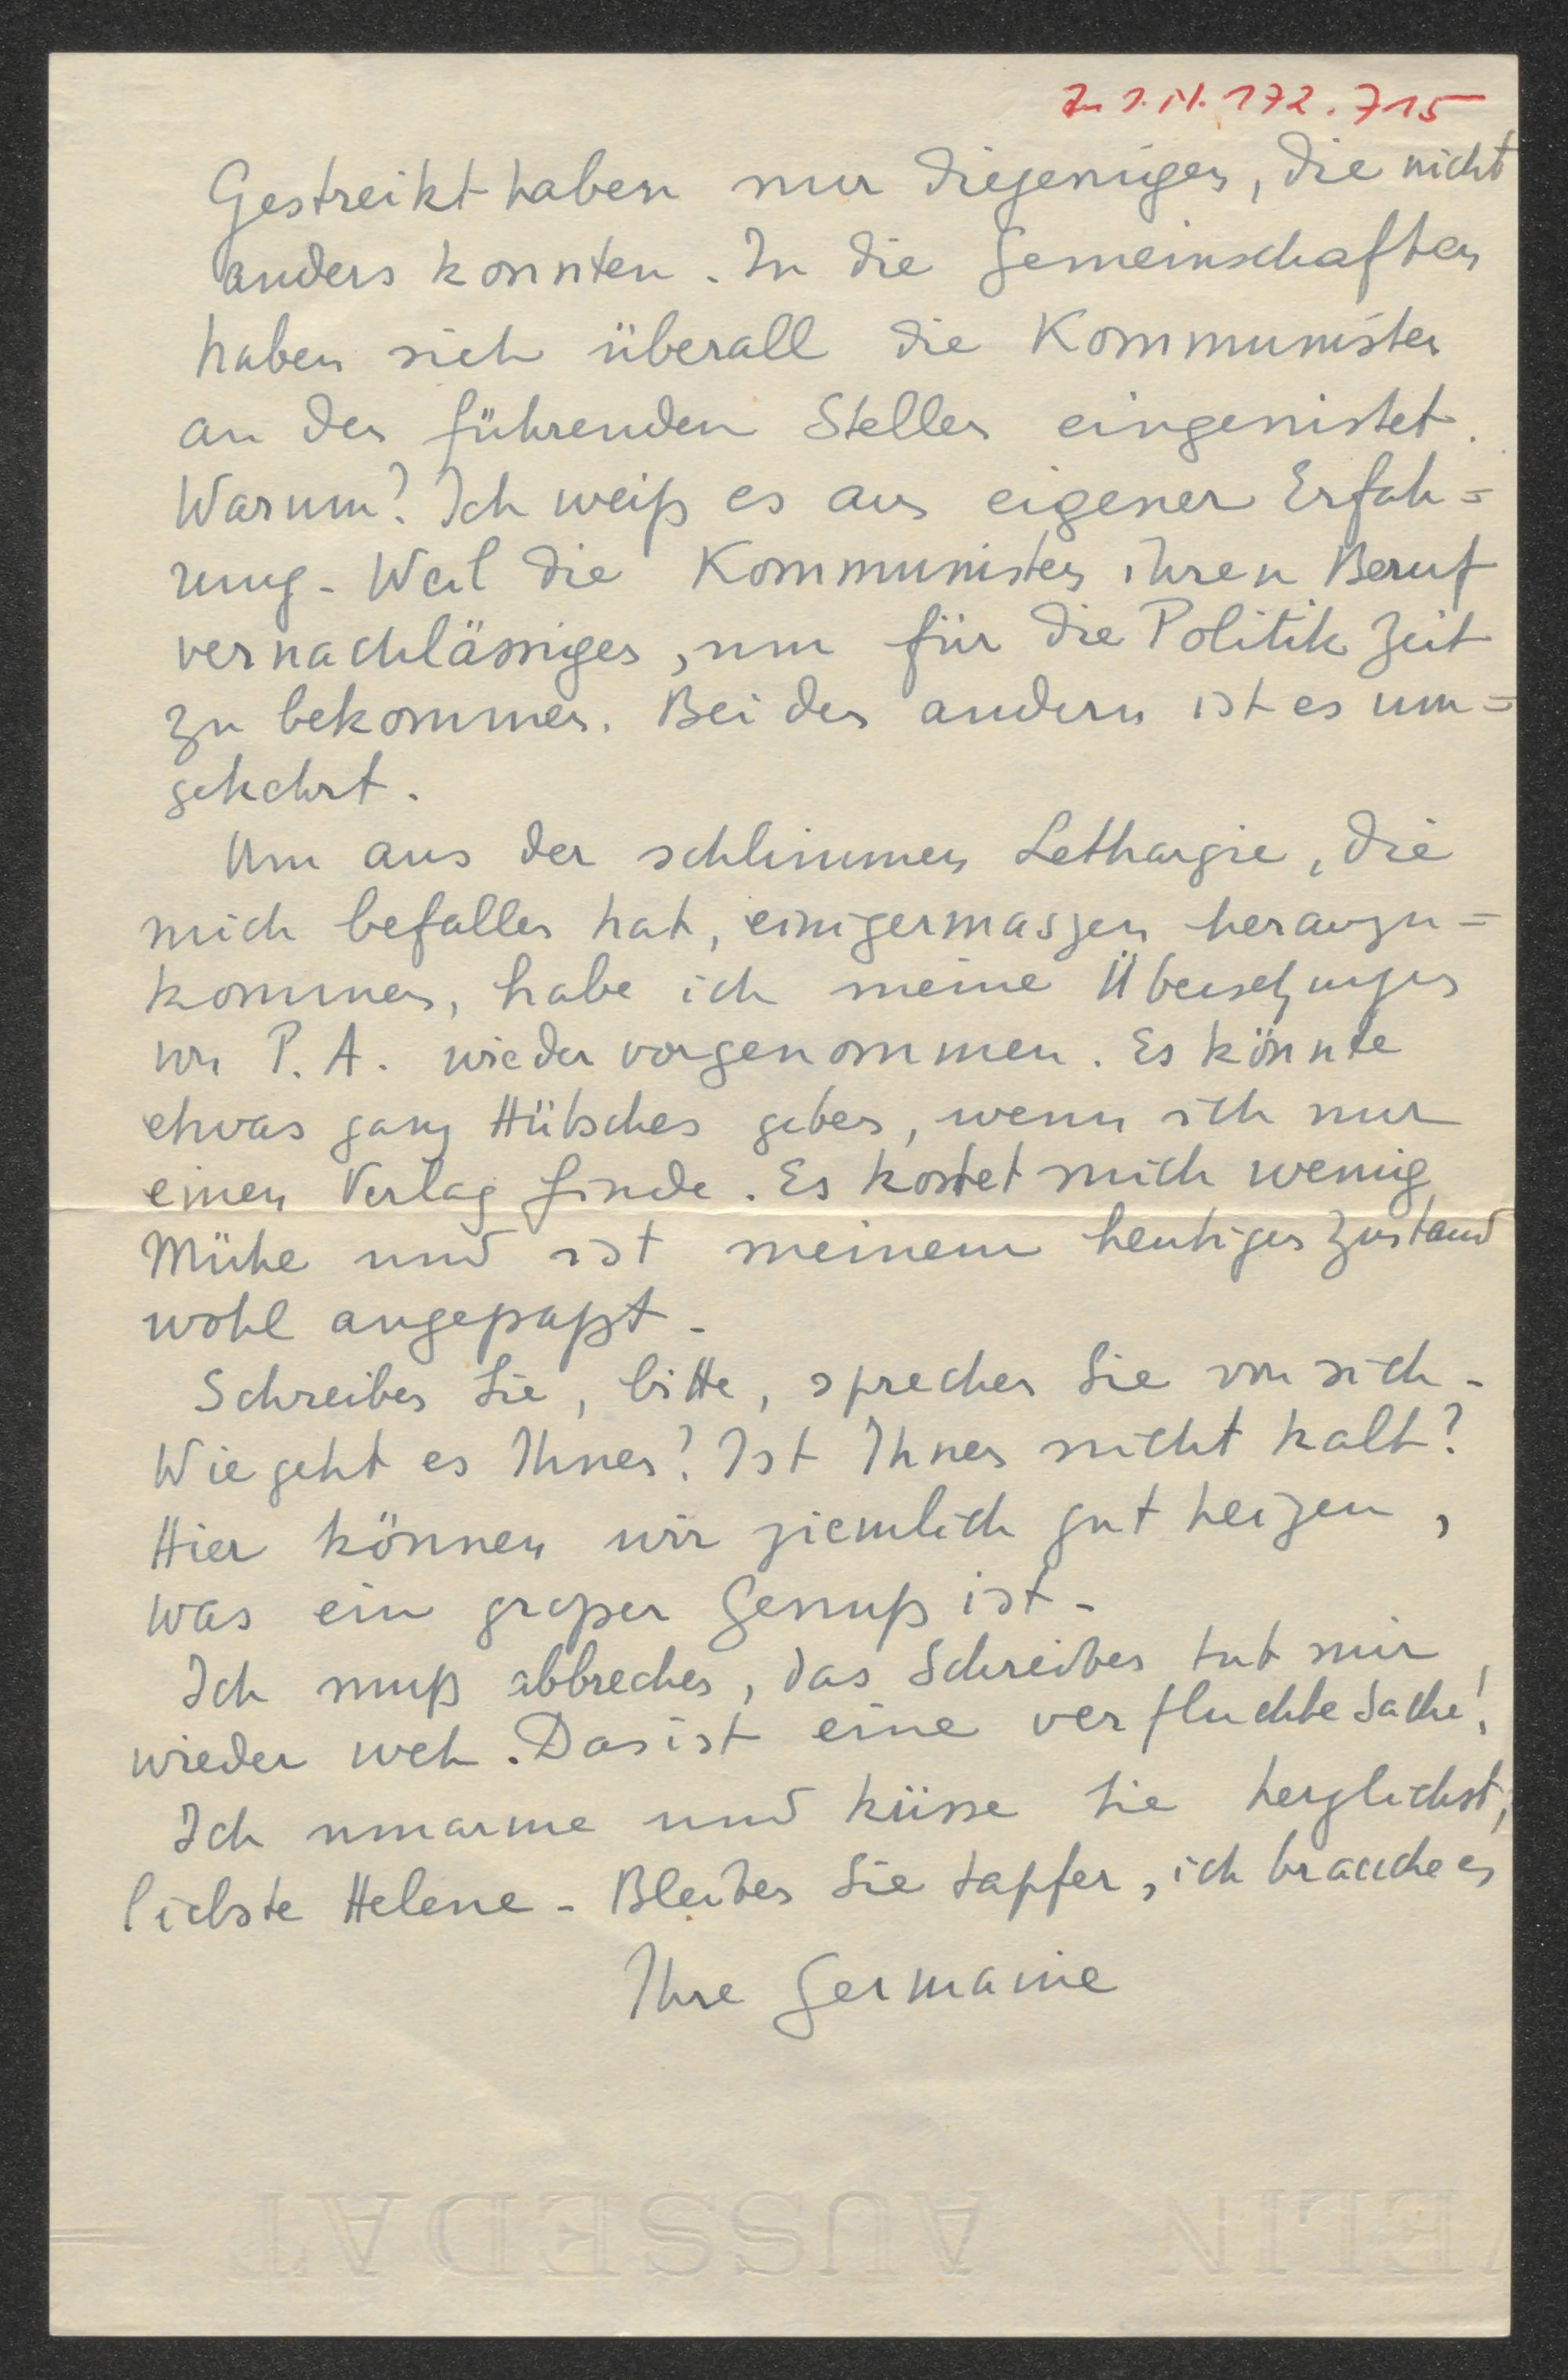 Zu I.N. 172.715
Gestreikt haben nur diejenigen, die nicht
anders konnten. In die Gemeinschaften
haben sich überall die Kommunisten
an den führenden Stellen eingenistet.
Warum? Ich weiß es aus eigener Erfah=
rung. Weil die Kommunisten ihren Beruf
vernachlässigen, um für die Politik Zeit
zu bekommen. Bei den andern ist es um=
gekehrt.
Um aus der schlimmen Lethargie, die
mich befallen hat, einigermassen herauszu=
kommen, habe ich meine Übersetzungen
von P. A. wieder vorgenommen. Es könnte
etwas ganz Hübsches geben, wenn ich nur
einen Verlag finde. Es kostet mich wenig
Mühe und ist meinem heutigen Zustand
wohl angepaßt.
Schreiben Sie, bitte, sprechen Sie von sich.
Wie geht es Ihnen? Ist Ihnen nicht kalt?
Hier können wir ziemlich gut heizen,
was ein großer Genuß ist.
Ich muß abbrechen, das Schreiben tut mir
wieder weh. Das ist eine verfluchte Sache!
Ich umarme und küsse Sie herzlichst,
liebste Helene. Bleiben Sie tapfer, ich brauche es
Ihre Germaine
VELIN AUSSEDAT